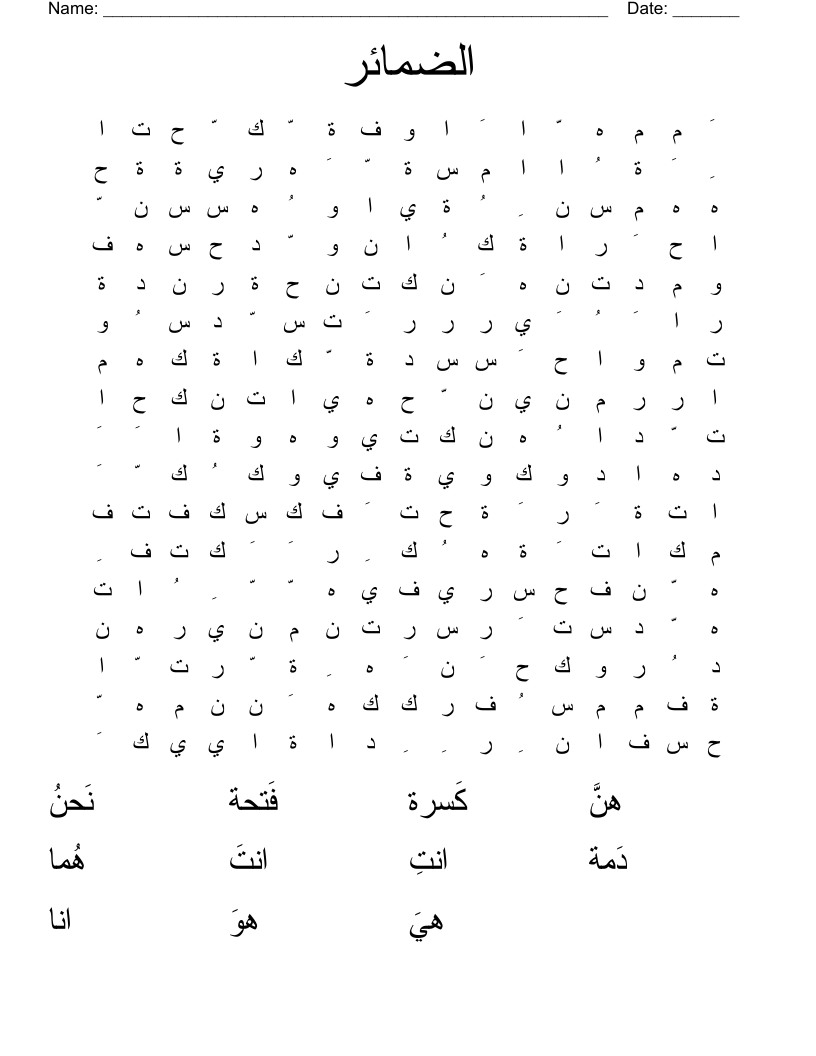 Name: ____________________ Date: _______
الضمائر
َ م م ه ّ ا َ ا و ف ة ّ ك ّ ح ت ا
ِ َ ة ُ ا ا م س ة ّ َ ه ر ي ة ة ح
ه ه م س ن ِ ُ ة ي ا و ُ ه س س ن ّ
ا ح َ ر ا ة ك ُ ا ن و ّ د ح س ه ف
و م د ت ن ه َ ن ك ت ن ح ة ر ن د ة
ر ا َ ُ َ ي ر ر ر َ ت س ّ د س ُ و
ت م و ا ح َ س س د ة ّ ك ا ة ك ه م
ا ر ر م ن ي ن ّ ح ه ي ا ت ن ك ح ا
ت ّ د ا ُ ه ن ك ت ي و ه و ة ا َ َ
د ه ا د و ك و ي ة ف ي و ك ُ ك ّ َ
ا ت ة َ ر َ ة ح ت َ ف ك س ك ف ت ف
م ك ا ت َ ة ه ُ ك ِ ر َ َ ك ت ف ِ
ه ّ ن ف ح س ر ي ف ي ه ّ ّ ِ ُ ا ت
ه ّ د س ت َ ر س ر ت ن م ن ي ر ه ن
د ُ ر و ك ح َ ن َ ه ِ ة ّ ر ت ّ ا
ة ف م م س ُ ف ر ك ك ه َ ن ن م ه ّ
ح س ف ا ن ِ ر ِ ِ د ا ة ا ي ي ك َ
هنَّ كَسرة فَتحة نَحنُ
دَمة انتِ انتَ هُما
هيَ هوَ انا